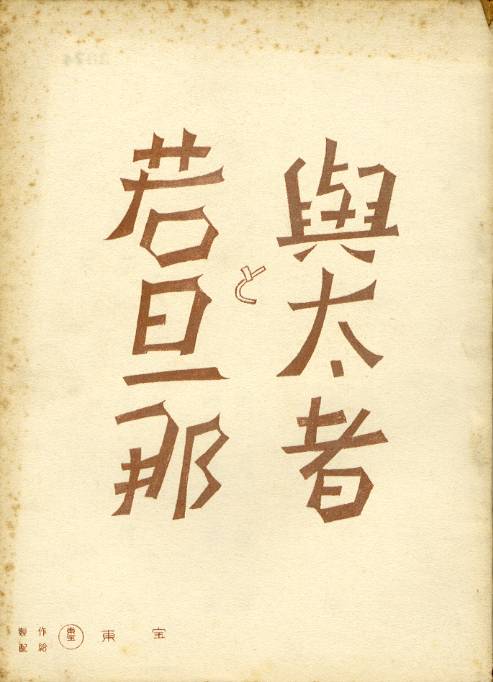 與太者
と
若旦那
製作
配給
東宝